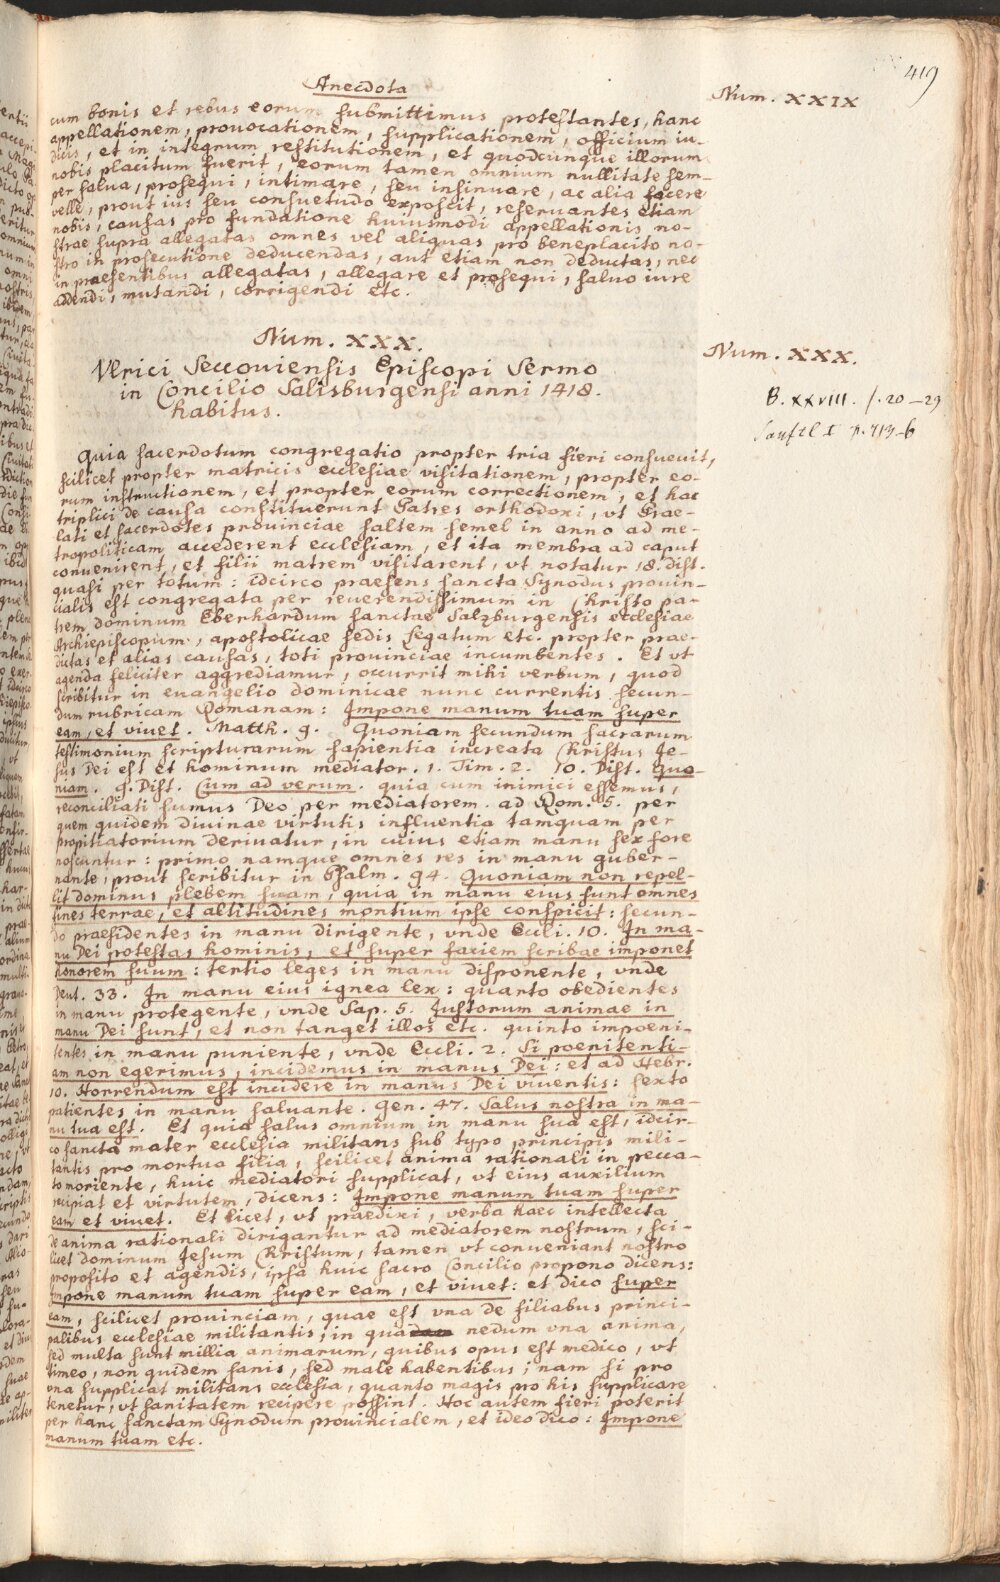 419
Anecdota
Num. XXIX
cum bonis et rebus eorum submittimus protestantes, hanc
appellationem, provocationem, supplicationem, officium iu-
dicis, et in integrum restitutionem, et quodcunque illorum
nobis placitum fuerit, eorum tamen omnium nullitate sem-
per salua, prosequi, intimare, seu insinuare, ac alia facere
velle, prout ius seu consuetudo exposcit, reseruantes etiam
nobis, causas pro fundatione huiusmodi appellationis no-
strae supra allegatas omnes vel aliquas pro beneplacito no-
stro in prosecutione deducendas, aut etiam non deductas, nec
in praesentibus allegatas, allegare et prosequi, saluo iure
addendi, mutandi, corrigendi etc.
Num. XXX.
Num. XXX.
Vlrici Seccouiensis Episcopi Sermo
in Concilio Salisburgensi anni 1418.
habitus.
B. XXVIII. f. 20–29
Quia sacerdotum congregatio propter tria fieri consueuit,
scilicet propter matricis ecclesiae visitationem, propter eo-
rum instructionem, et propter eorum correctionem, et hac
triplici de causa constituerunt Patres orthodoxi, vt Prae-
lati et sacerdotes provinciae saltem semel in anno ad me-
tropoliticam accederent ecclesiam, et ita membra ad caput
convenirent, et filii matrem visitarent, vt notatur 18. dist.
quasi per totum: idcirco praesens sancta Synodus prouin-
cialis est congregata per reuerendissimum in Christo pa-
trem dominum Eberhardum sanctae Salzburgensis ecclesiae
Archiepiscopum, apostolicae sedis Legatum etc. propter prae-
dictas et alias causas, toti prouinciae incumbentes. Et vt
agenda feliciter aggrediamur, occurrit mihi verbum, quod
scribitur in euangelio dominicae nunc currentis secun-
dum rubricam Romanam: Impone manum tuam super
eam, et viuet. Matth. 9. Quoniam secundum sacrarum
testimonium scripturarum sapientia increata Christus Je-
sus Dei est et hominum mediator. 1. Tim. 2. 10. Dist. Quo-
niam. 9. Dist. Cum ad verum. quia cum inimici essemus,
reconciliati sumus Deo per mediatorem. ad Rom. 5. per
quem quidem diuinae virtutis influentia tamquam per
propitiatorium deriuatur, in cuius etiam manu sex fore
noscuntur: primo namque omnes res in manu guber-
nante, prout scribitur in Psalm. 94. Quoniam non repel-
lit dominus plebem suam, quia in manu eius sunt omnes
fines terrae, et altitudines montium ipse conspicit: secun-
do praesidentes in manu dirigente, vnde Eccli. 10. In ma-
nu Dei potestas hominis, et super faciem scribae imponet
honorem suum: tertio leges in manu disponente, vnde
Deut. 33. In manu eius ignea lex: quarto obedientes
in manu protegente, vnde Sap. 5. Justorum animae in
manu Dei sunt, et non tanget illos etc. quinto impoeni-
tentes in manu puniente, vnde Eccli. 2. Si poenitenti-
am non egerimus, incidemus in manus Dei: et ad Hebr.
10. Horrendum est incidere in manus Dei viventis: sexto
patientes in manu saluante. Gen. 47. Salus nostra in ma-
nu tua est. Et quia salus omnium in manu sua est, idcir-
co sancta mater ecclesia militans sub typo principis mili-
tantis pro mortua filia, scilicet anima rationali in pecca-
to moriente, huic mediatori supplicat, vt eius auxilium
recipiat et virtutem, dicens: Impone manum tuam super
eam et viuet. Et licet, vt praedixi, verba haec intellecta
de anima rationali dirigantur ad mediatorem nostrum, sci-
licet dominum Jesum Christum, tamen vt conueniant nostro
proposito et agendis, ipsa huic sacro Concilio propono dicens:
Impone manum tuam super eam, et viuet: et dico super
eam, scilicet prouinciam, quae est vna de filiabus princi-
palibus ecclesiae militantis, in qua nedum vna anima,
sed multa sunt millia animarum, quibus opus est medico, vt
timeo, non quidem sanis, sed male habentibus; nam si pro
vna supplicat militans ecclesia, quanto magis pro his supplicare
tenetur, vt sanitatem recipere possint. Hoc autem fieri poterit
per hanc sanctam Synodum prouincialem, et ideo dico: Impone
manum tuam etc.